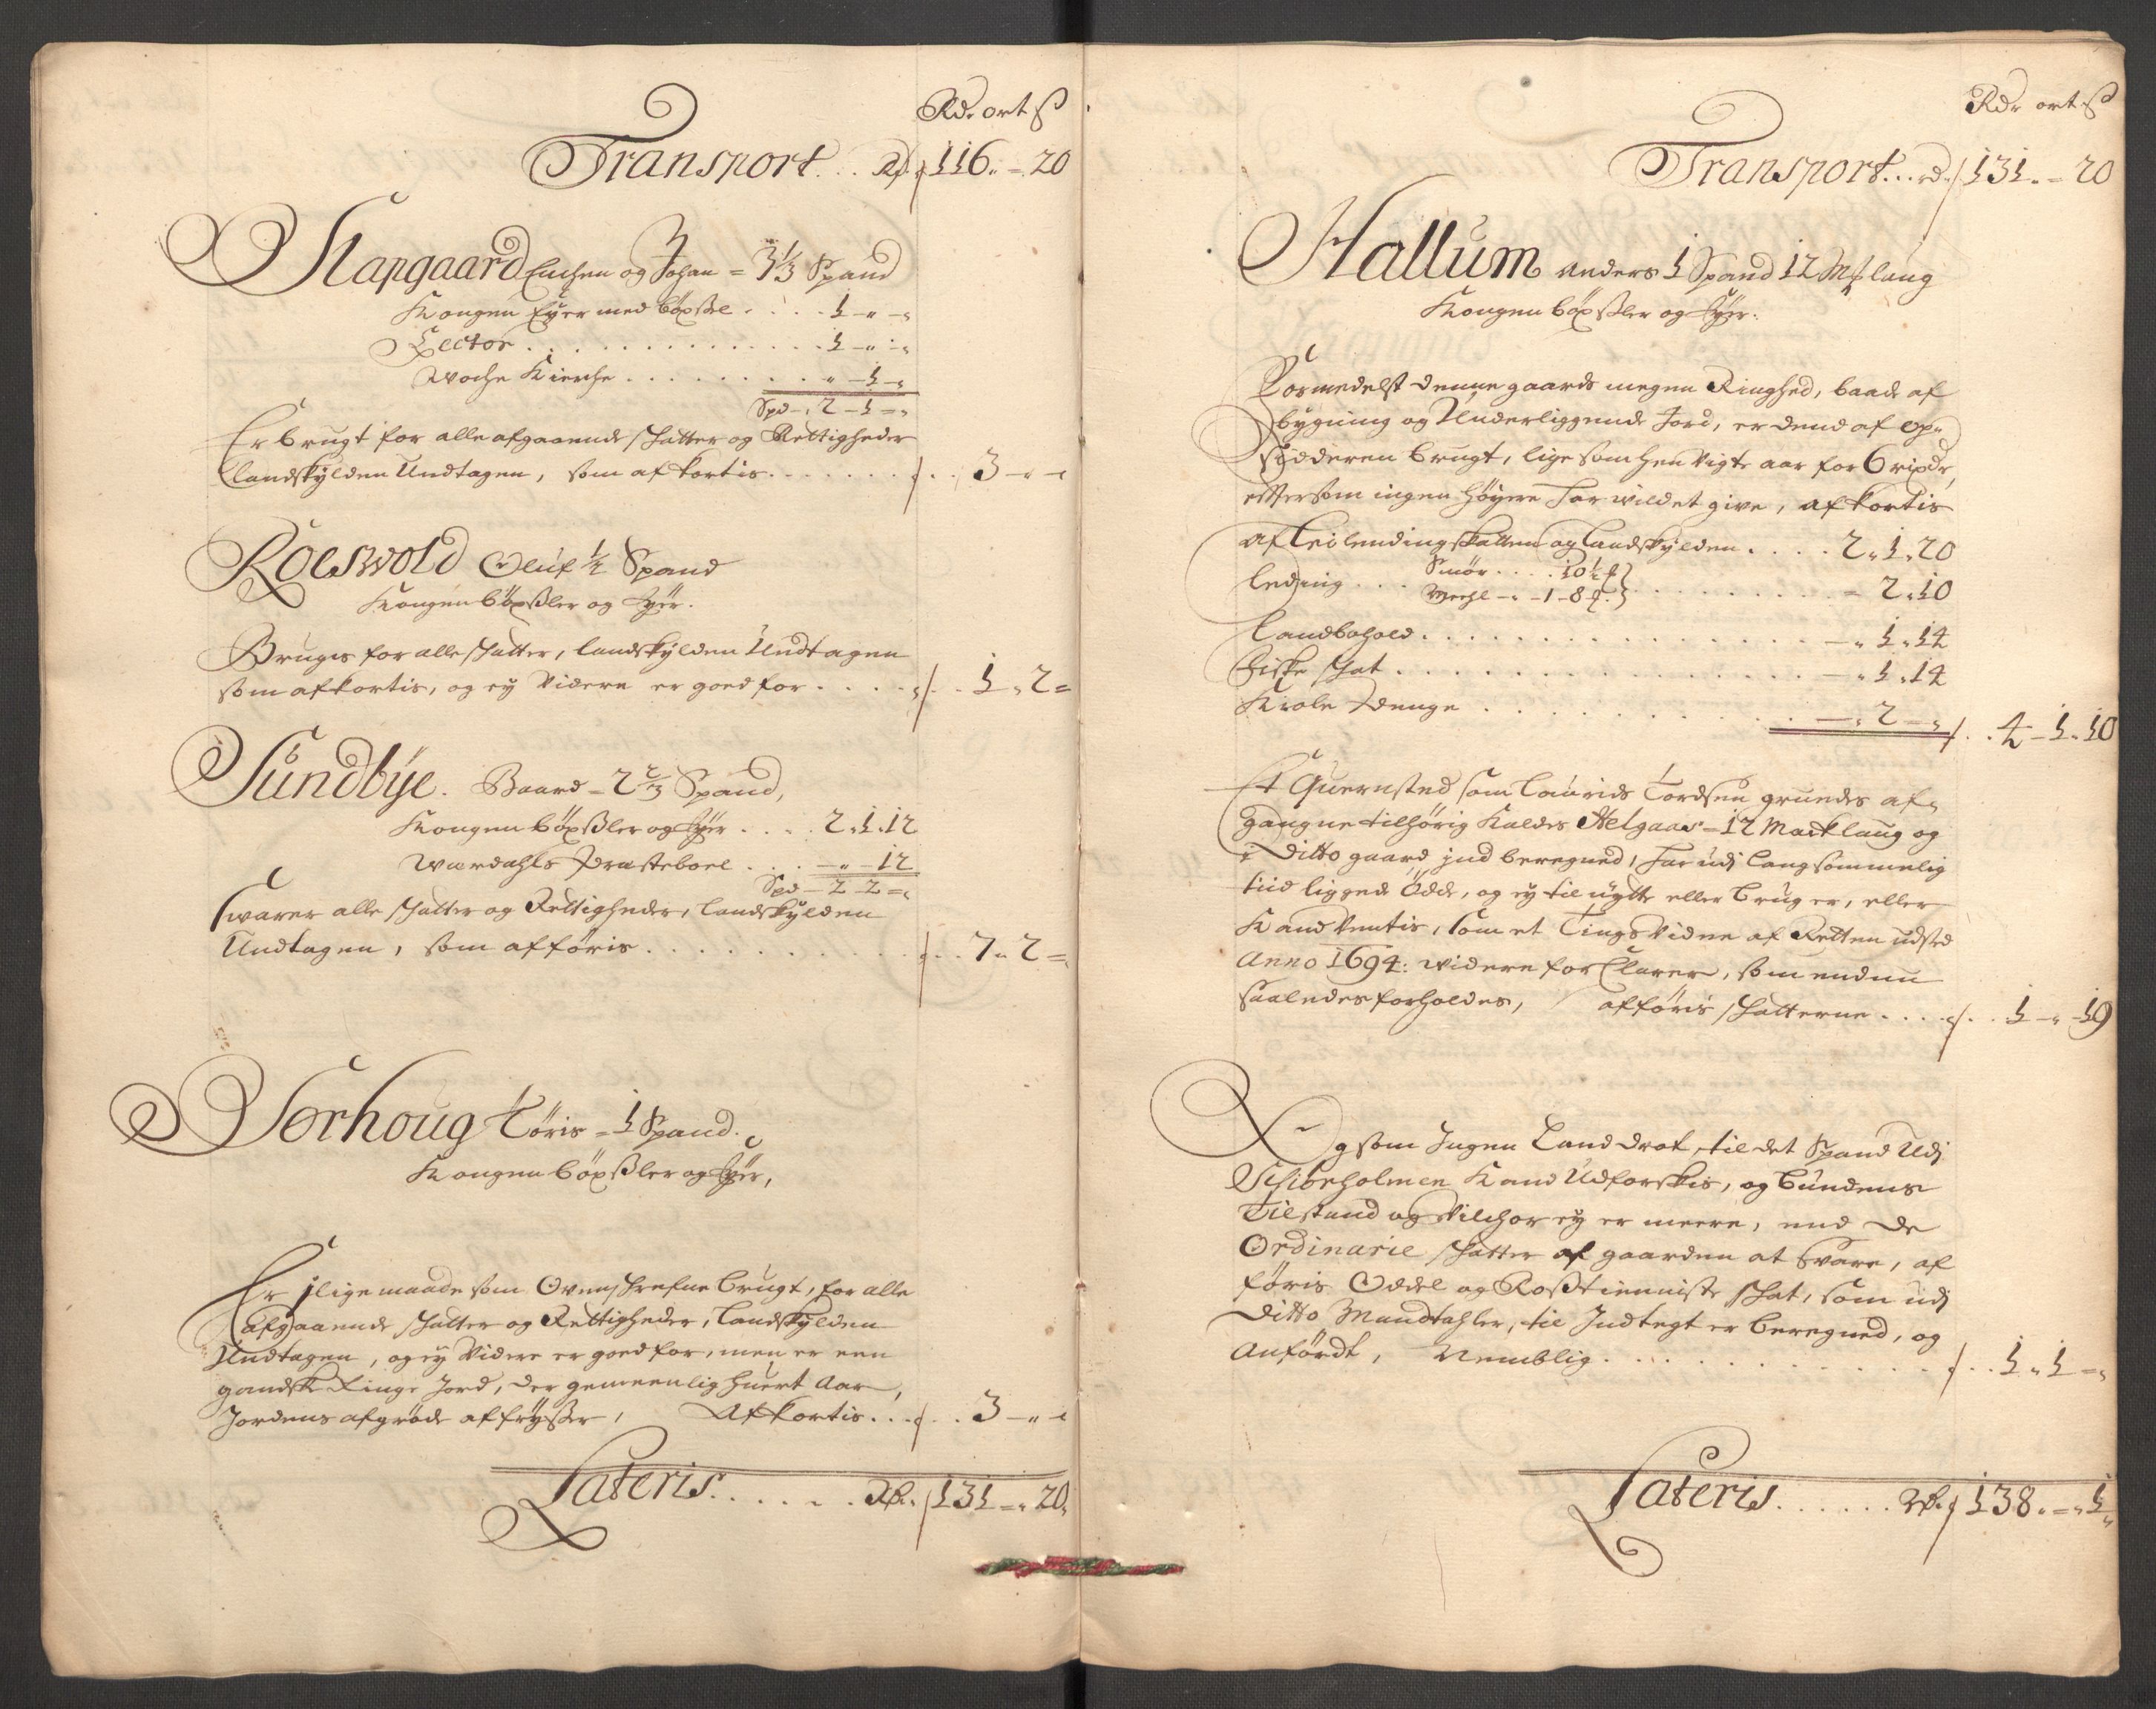 Rdr ort ß
Transport . . . Rdr 116 - " - 20
Slapgaard Enchen og Johan = 3 1/3 Spand
Kongen Eyer med böxßel . . . . 1 - " - "
Lector . . . . . . . . . . . . 1 - " - "
Woche Kierche . . . . . . . . . " - 1 - "
Spd - 2 - 1 = "
Er brugt for alle afgaaende schatter og Rettigheder
landskylden Undtagen, som afkortis . . . . . . . 3 - " - "
Roeswold Oluf 1/2 Spand
Kongen böxßler og Eyer.
Bruges for alle schatter, landskylden Undtagen
som afkortis, og ey Videre er goed for . . . . . 1 " 2 =
Sundbÿe. Baard = 2 2/3 Spand,
Kongen böxßler og Eyer . . . . 2 " 1 " 12
Wærdahls Præsteboel . . . - " - 12
Spd - 2 - 2 = "
swarer alle schatter og Rettigheder, landskylden
Undtagen, som afföris . . . . . . . . . . . 7 " 2 =
Sorhoug Töris = 1 Spand.
Kongen böxßler og Eyer,
Er j lige maade som Ovenschrefne brugt, for alle
afgaaende schatter og Rettigheder, landskylden
Undtagen, og ey Videre er goed for, men er een
gandske Ringe Jord, der gemeenlig huert Aar,
Jordens afgröde affrÿsser, Afkortis . . . . 3 - " -
Lateris . . . . . Rdr 131 = " 20
Rdr ort ß
Transport . . . rd 131 " = 20
Hallum Anders 1 Spand 12 Mklaug
Kongen böxßler og Eyer.
Formedelst denne gaards megen Ringhed, baade af
bygning og Underliggende Jord, er dend af op-
sidderen brugt, lige som hen Vigte aar for 6 rixdr,
efftersom ingen höyere har wildet give, afkortis
af Leilendingskatten og landskylden . . . . 2 " 1 " 20
leding . . . Smör . . . . 10 1/2
Meehl - " - 1 - 8 . . . . . . . . . = 2 " 10
Landbohold . . . . . . . . . . . . . . . - " 1 " 14
Fiske schat . . . . . . . . . . . . . . . - " 1 " 14
Kiole Penge . . . . . . . . . . . . - " 2 - " 4 - 1 " 10
Et Quernsted som Laurids Tordsen grundes af-
gangne tilhörig Kaldes Helgaas = 12 Marklaug og
i Ditto gaard jnd beregned, har udj langsommelig
tiid liggede Ödde, og ey til nytte eller brug er, eller
Kand Ventis, som et Tings Vidne af Retten udsted
Anno 1694: widere forClarer, som endnu
saaledes forholdes, afföris schatterne . . . . 1 - " - 19
Og som Ingen Landdrot, til det Spand Udj
Schibeholmen Kand Udforskis, og bundens
Tilstand og Vilchor ey er meere, end de
Ordinarie schatter af gaarden at Svare, af
föris Oddel og Roßtienniste schat, som udj
Ditto Mandtahler, til Indtegt er beregned, og
Anfördt, Nemblig . . . . . . . . . . . . . 1 " 1 = "
Lateris . . . . . . Rdr 138 " = " 1 "